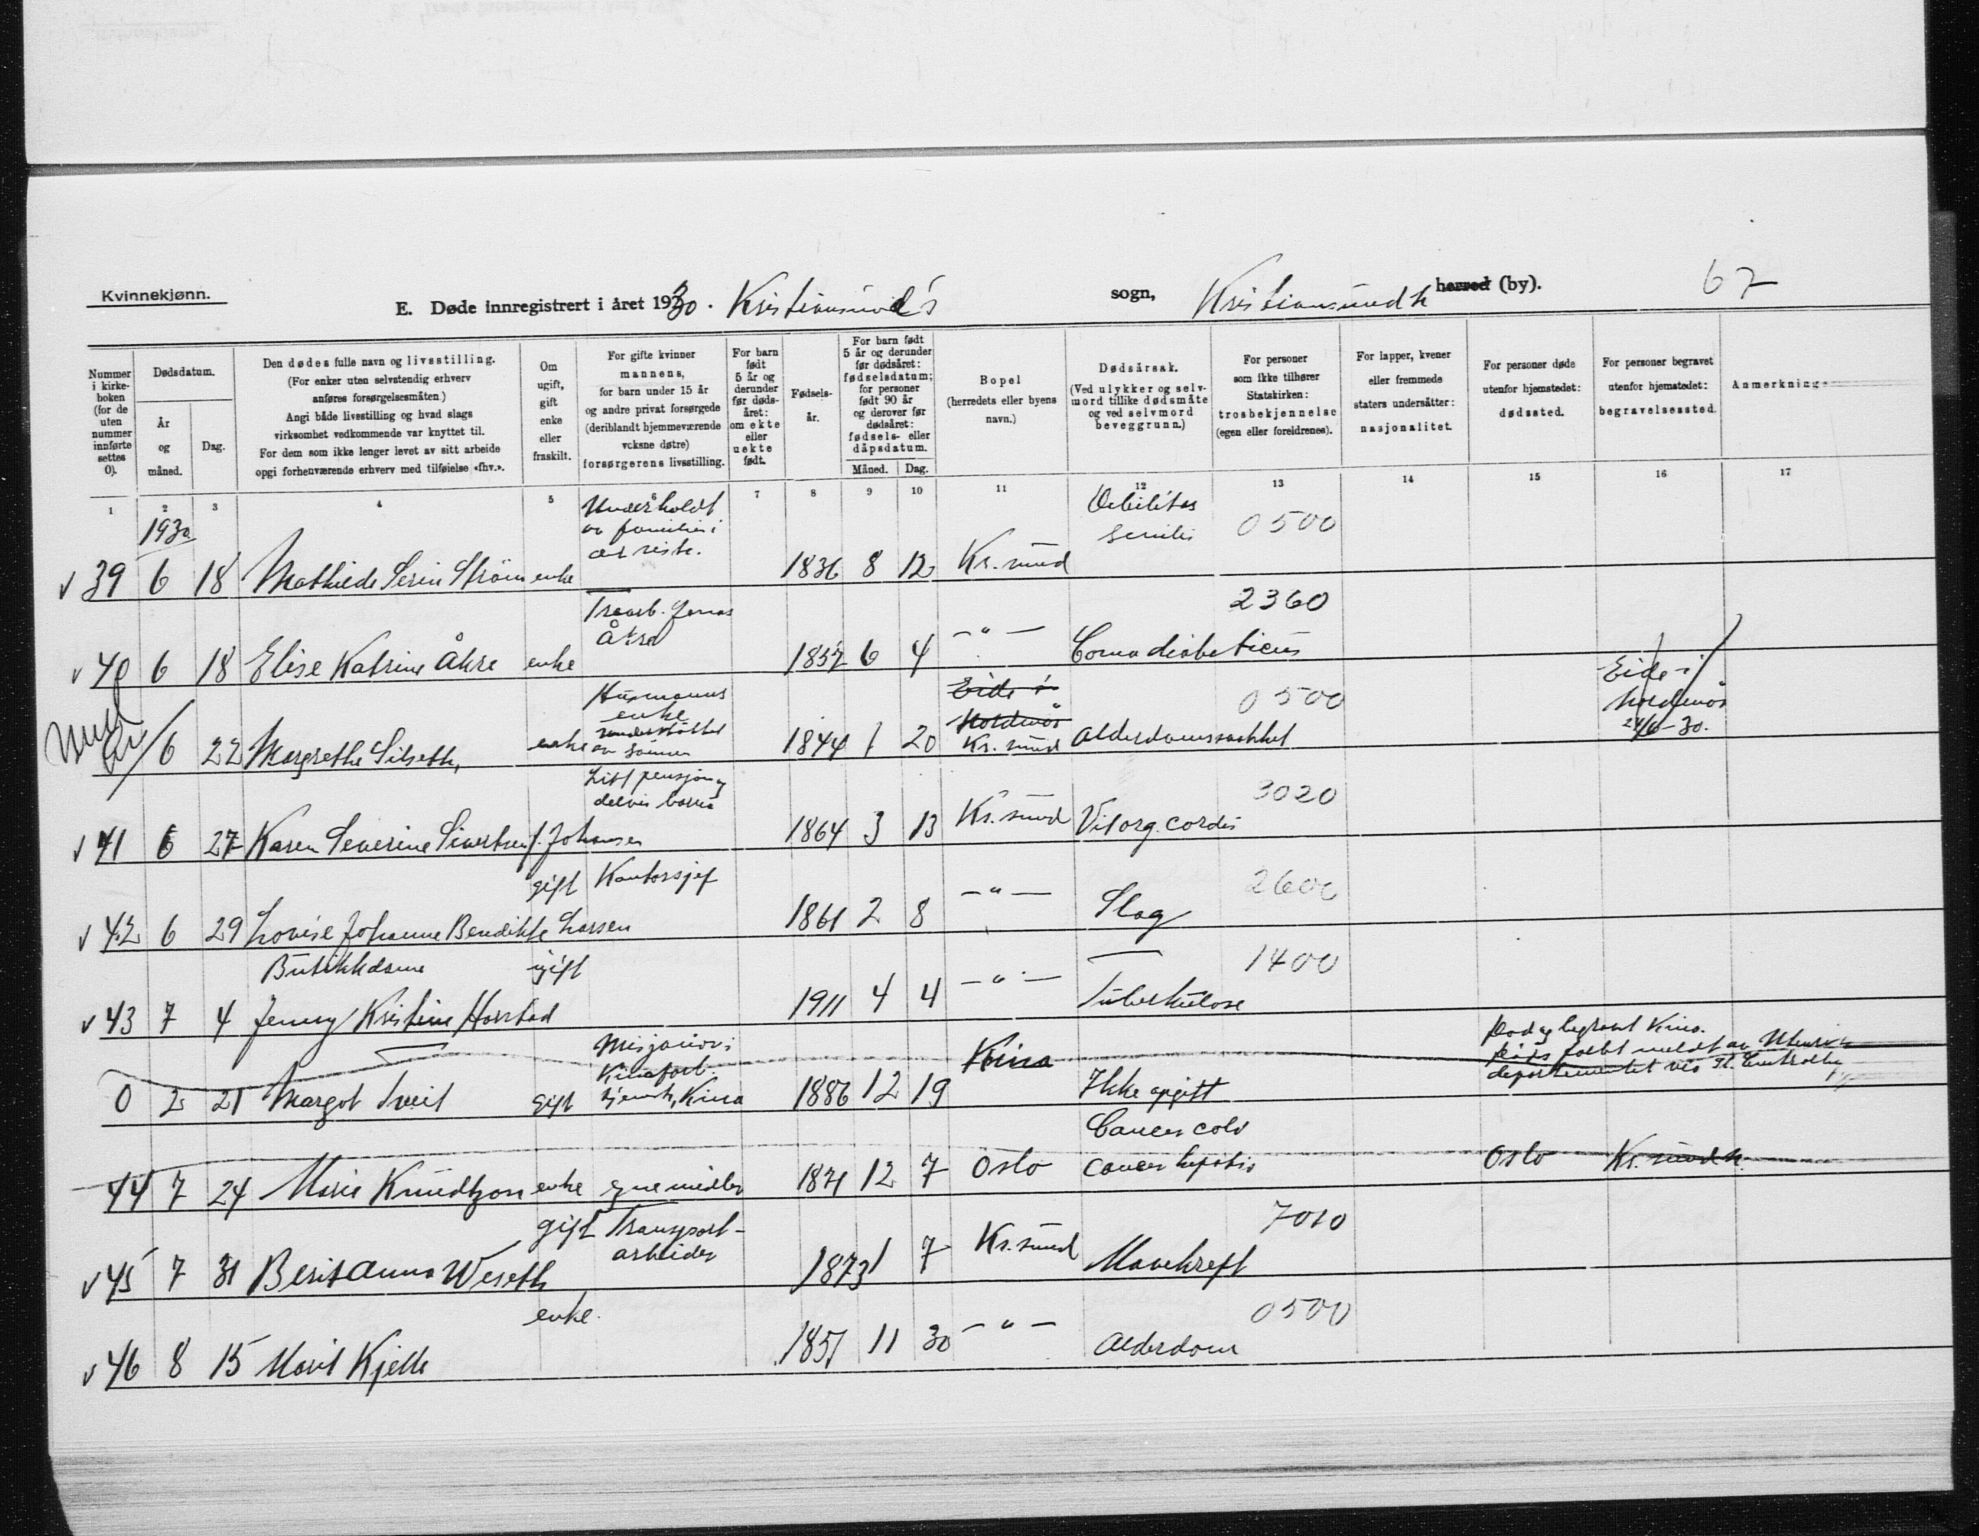 Kvinnekjønn.
E. Døde innregistrert i året 1930. Kristiansund's sogn, Kristiansund N herred (by). 67
Nummer i kirkeboken (for de uten nummer innførte settes 0).
Dødsdatum.
År og måned.
Dag.
Den dødes fulle navn og livsstilling.
(For enker uten selvstendig erhverv anføres forsørgelsesmåten.)
Angi både livsstilling og hvad slags virksomhet vedkommende var knyttet til.
For dem som ikke lenger levet av sitt arbeide opgi forhenværende erhverv med tilføielse «fhv.».
Om ugift, gift enke eller fraskilt.
For gifte kvinner mannens, for barn under 15 år og andre privat forsørgede (deriblandt hjemmeværende voksne døtre) forsørgerens livsstilling.
For barn født 5 år og derunder før dødsåret: om ekte eller uekte født.
Fødselsår.
For barn født 5 år og derunder før dødsåret: fødselsdatum; for personer født 90 år og derover før dødsåret: fødsels- eller dåpsdatum.
Måned. Dag.
Bopel
(herredets eller byens navn.)
Dødsårsak.
(Ved ulykker og selvmord tillike dødsmåte og ved selvmord beveggrunn.)
For personer som ikke tilhører Statskirken: trosbekjennelse (egen eller foreldrenes).
For lapper, kvener eller fremmede staters undersåtter: nasjonalitet.
For personer døde utenfor hjemstedet: dødssted.
For personer begravet utenfor hjemstedet: begravelsessted.
Anmerkning
1 2 3 4 5 7 8 9 10 11 12 13 14 15 16 17
1930
Underholdt av familien
Debilitas senilis 0500
v 39 6 18 Mathilde Serin Strøm enke 1836 8 12 Kr. sund
Jonas Åkre 2360
v 40 6 18 Elise Katrine Åkre enke 1857 6 4 -"- Coma diabeticus
Husmanns enke understøttet av sønnen
Eide i Nordmør 0500 Eide i Nordmør 24/6-30.
6 22 Margrethe Silseth, enke 1844 1 20 Kr. sund Alderdomssvakhet
pensjon og delvis barna 3020
v 41 6 27 Karen Severine Sivertsen f. Johansen 1864 3 13 Kr. sund Vit. org. cordis
gift Kontorsjef 2600
v 42 6 29 Lovise Johanne Benedikte Larsen 1861 2 8 -"- Slag
Butikkdame ugift 1400
v 43 7 4 Jenny Kristine Harstad 1911 4 4 -"- Tuberkulose
Misjonær i Kinaforb. tjeneste, Kina
Kina
Død og begravet Kina.
0 2 21 Margot Tveit gift 1886 12 19 Ikke opgitt
Cancer coli
44 7 24 Marie Knudtzon enke egne midler 1871 12 7 Oslo cancer hepatis Oslo Kr. sund N.
gift Transportarbeider 7010
v 45 7 31 Berit Anna Weseth 1873 1 7 Kr. sund Mavekreft
enke. 0500
v 46 8 15 Marit Kjelle 1851 11 30 -"- Alderdom